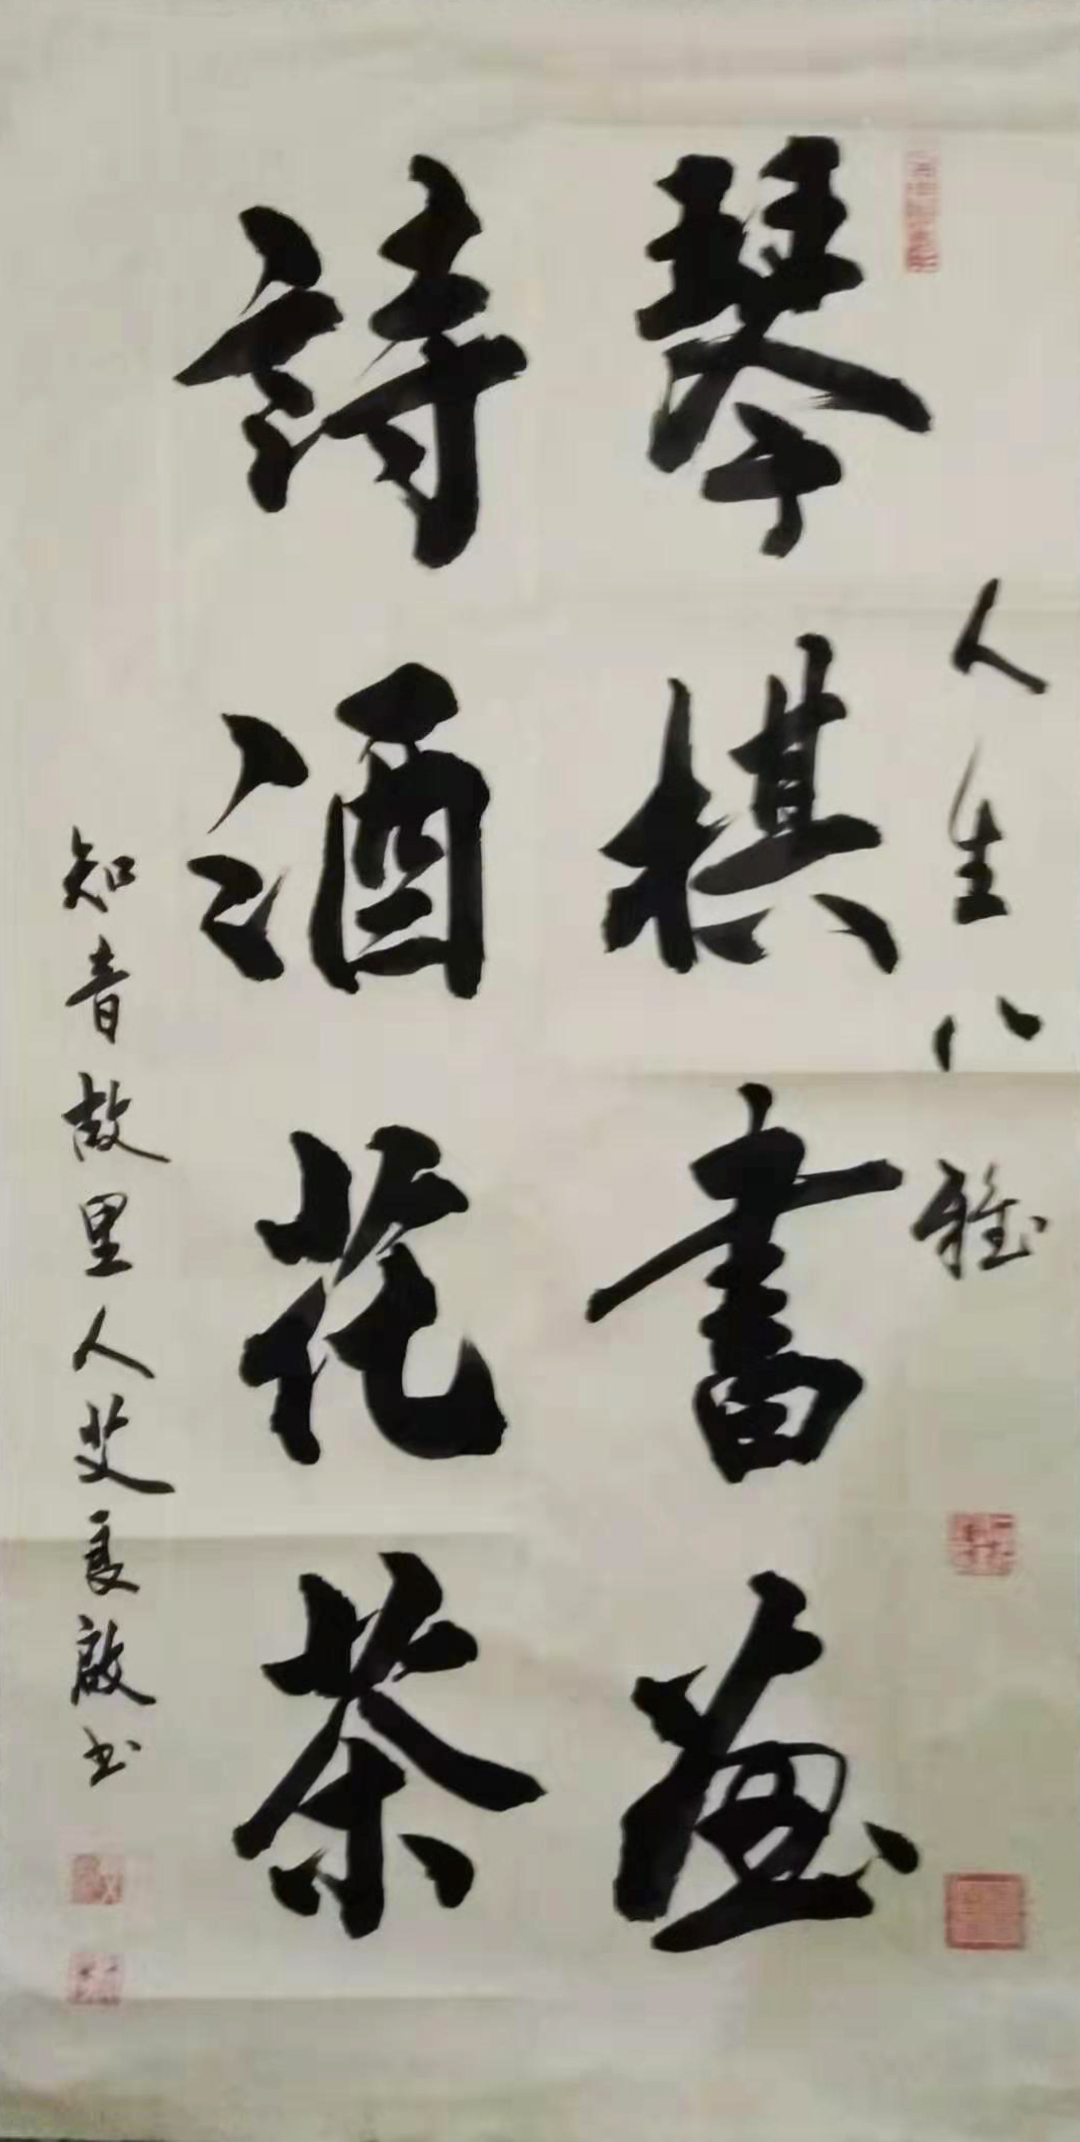 人生八雅
琴棋書畫
詩酒花茶
知音故里人艾良啟书